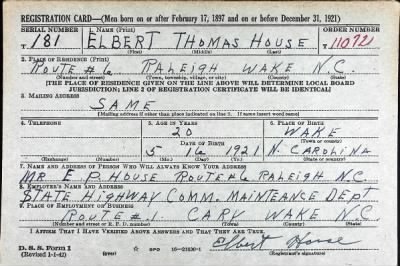 REGISTRATION CARD—(Men born on or after February 17, 1897 and on or before December 31, 1921)
SERIAL NUMBER 1. NAME (Print) ORDER NUMBER
T 181 ELBERT THOMAS HOUSE 11072
(First) (Middle) (Last)
2. PLACE OF RESIDENCE (Print)
ROUTE #6 RALEIGH WAKE N.C.
(Number and street) (Town, township, village, or city) (County) (State)
[THE PLACE OF RESIDENCE GIVEN ON THE LINE ABOVE WILL DETERMINE LOCAL BOARD
JURISDICTION; LINE 2 OF REGISTRATION CERTIFICATE WILL BE IDENTICAL]
3. MAILING ADDRESS
SAME
[Mailing address if other than place indicated on line 2. If same insert word same]
4. TELEPHONE 5. AGE IN YEARS 6. PLACE OF BIRTH
20 WAKE
DATE OF BIRTH (Town or county)
5 16 1921 N. CAROLINA
(Exchange) (Number) (Mo.) (Day) (Yr.) (State or country)
7. NAME AND ADDRESS OF PERSON WHO WILL ALWAYS KNOW YOUR ADDRESS
MR E P. HOUSE ROUTE 6 RALEIGH N.C.
8. EMPLOYER'S NAME AND ADDRESS
STATE HIGHWAY COMM. MAINTEANCE DEPT
9. PLACE OF EMPLOYMENT OR BUSINESS
ROUTE #.1. CARY WAKE N.C.
(Number and street or R. F. D. number) (Town) (County) (State)
I AFFIRM THAT I HAVE VERIFIED ABOVE ANSWERS AND THAT THEY ARE TRUE.
D. S. S. Form 1
(Revised 1-1-42) (over) GPO 16—21630-1 Elbert House
(Registrant's signature)